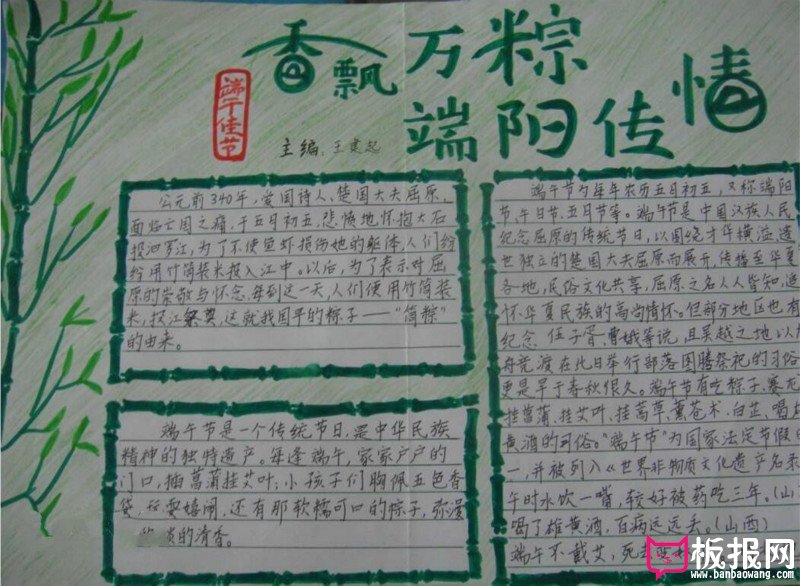 香飘万粽
端阳传情
端午佳节
主编:王
公元前340年,爱国诗人、楚国大夫屈原,
面临亡国之痛,于五月初五,悲愤地怀抱大石
投汨罗江,为了不使鱼虾损伤她的躯体,人们纷
纷用竹筒装米投入江中。以后,为了表示对屈
原的崇敬与怀念,每到这一天,人们便用竹筒装
米,投江祭奠,这就我国平的粽子——“筒粽”
的由来。
端午节是一个传统节日,是中华民族
精神的独特遗产。每逢端午,家家户户的
门口,插菖蒲挂艾叶;小孩子们胸佩五色香
袋,嬉闹,还有那软糯可口的粽子,弥漫
的清香。
端午节为每年农历五月初五,又称端阳
节、午日节、五月节等。端午节是中国汉族人民
纪念屈原的传统节日,以围绕才华横溢、遗
世独立的楚国大夫屈原而展开,传播至华夏
各地,民俗文化共享,屈原之名人人皆知,追
怀华夏民族的高尚情怀。但部分地区也有
纪念伍子胥、曹娥等说,且吴越之地以
舟竞渡在此日举行部落图腾祭祀的习俗
更是早于春秋很久。端午节有吃粽子,赛龙
挂菖蒲、挂艾叶、挂蒿草、薰苍术、白芷、喝
黄酒的习俗。“端午节”为国家法定节假
一,并被列入《世界非物质文化遗产名录
午时水饮一嘴,较好被药吃三年。(山
喝了雄黄酒,百病远远去。(山西)
端午不戴艾,死去
板报网
www.banbaowang.com